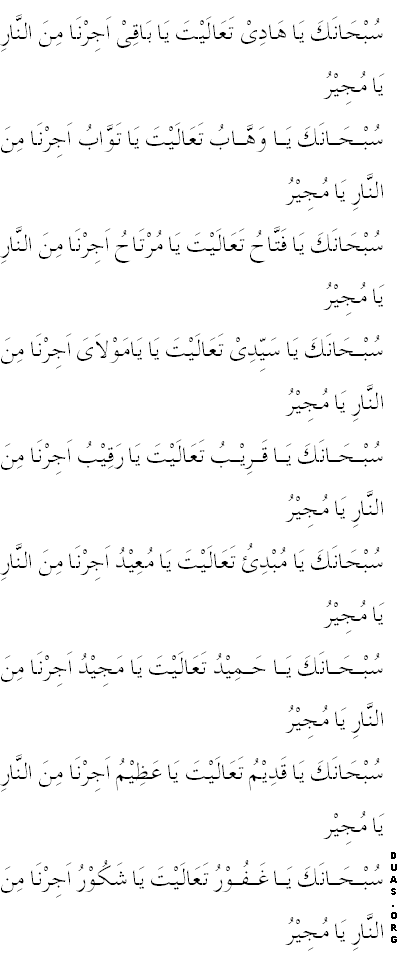 سُبْحَانَكَ يَا هَادِىْ تَعَالَيْتَ يَا بَاقِىْ اَجِرْنَا مِنَ النَّارِ
يَا مُجِيْرُ
سُبْـحَـانَكَ يَـا وَهَّـابُ تَعَالَيْتَ يَا تَوَّابُ اَجِرْنَا مِنَ
النَّارِ يَا مُجِيْرُ
سُبْحَانَكَ يَا فَتَّاحُ تَعَالَيْتَ يَا مُرْتَاحُ اَجِرْنَا مِنَ النَّارِ
يَا مُجِيْرُ
سُبْـحَانَكَ يَا سَيِّدِىْ تَعَالَيْتَ يَا يَامَوْلاَىَ اَجِرْنَا مِنَ
النَّارِ يَا مُجِيْرُ
سُبْـحَـانَكَ يَـا قَـرِيْـبُ تَعَالَيْتَ يَا رَقِيْبُ اَجِرْنَا مِنَ
النَّارِ يَا مُجِيْرُ
سُبْحَانَكَ يَا مُبْدِئُ تَعَالَيْتَ يَا مُعِيْدُ اَجِرْنَا مِنَ النَّارِ
يَا مُجِيْرُ
سُبْـحَـانَكَ يَـا حَـمِيْدُ تَعَالَيْتَ يَا مَجِيْدُ اَجِرْنَا مِنَ
النَّارِ يَا مُجِيْرُ
سُبْحَانَكَ يَا قَدِيْمُ تَعَالَيْتَ يَا عَظِيْمُ اَجِرْنَا مِنَ النَّارِ
يَا مُجِيْر
سُبْـحَـانَكَ يَـا غَـفُـوْرُ تَعَالَيْتَ يَا شَكُوْرُ اَجِرْنَا مِنَ
النَّارِ يَا مُجِيْرُ
DUAS.ORG